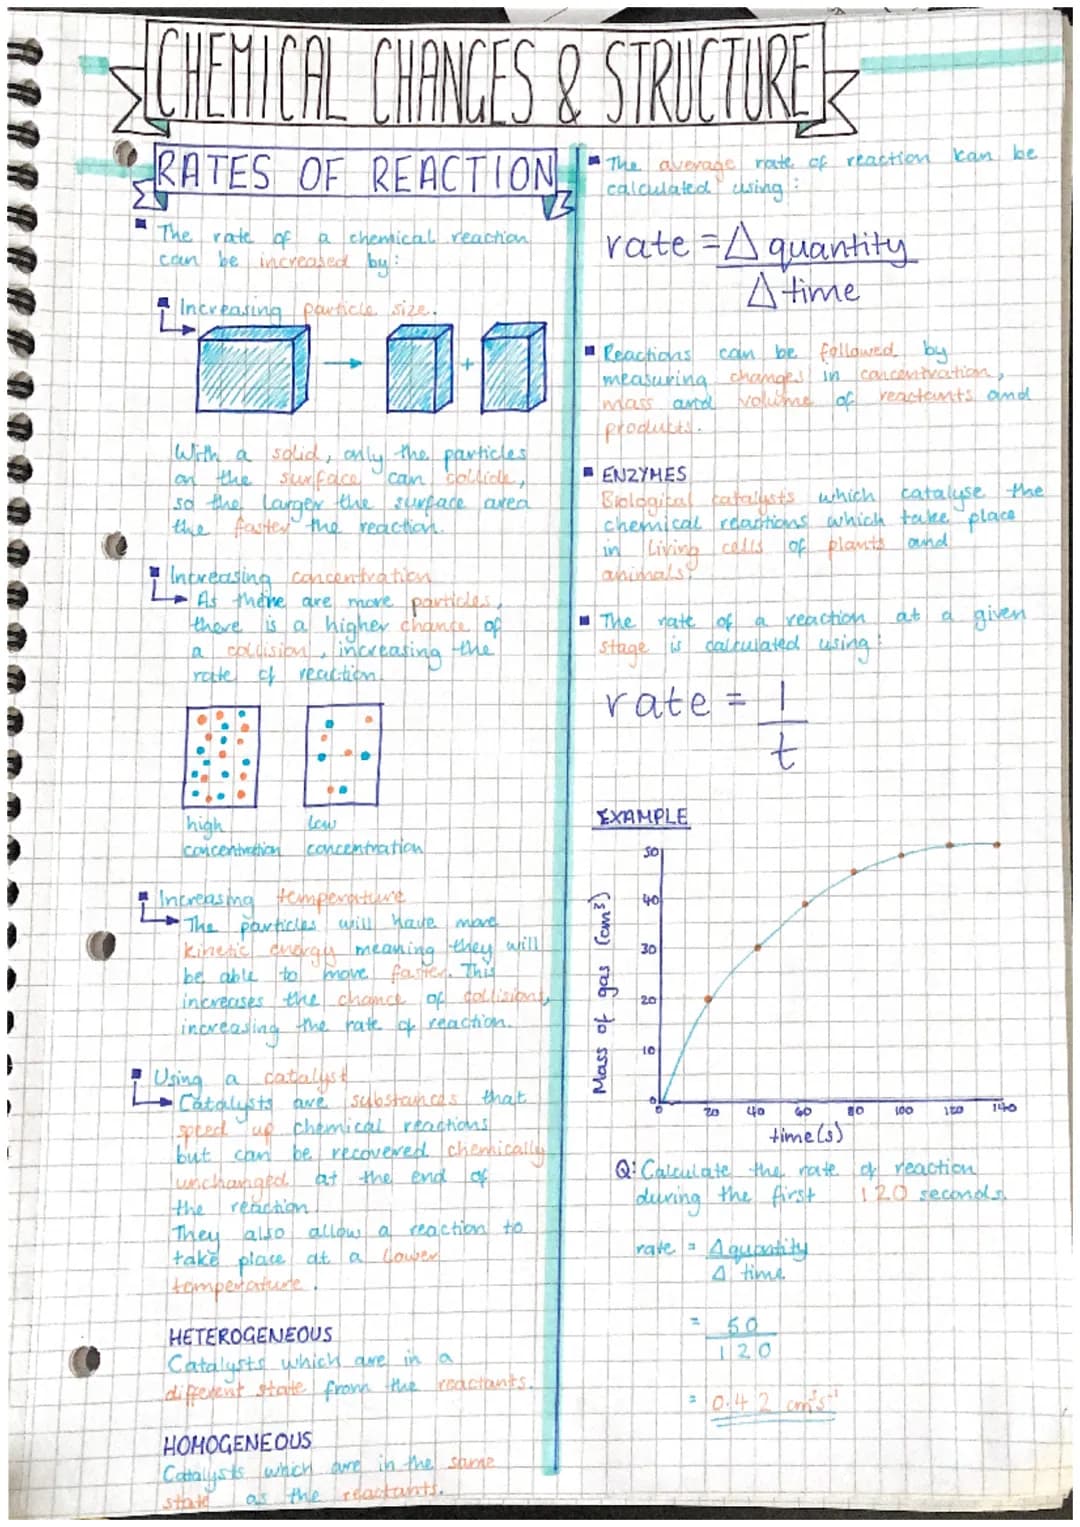 CHEMICAL CHANGES & STRUCTURE
RATES OF REACTION
The rate of a chemical reaction
can be increased by:
Increasing particle size.
With a solid, only the particles
on the surface can collide,
so the larger the surface area
the faster the reaction.
Increasing concentration
As there are more particles,
there is a higher chance of
a collision, increasing the
rate of reaction.
high
concentration
low
concentration
Increasing temperature
The particles will have more
kinetic energy meaning they will
be able to move faster. This
increases the chance of collisions,
increasing the rate of reaction.
Using a catalyst
Catalysts are substances that
speed up chemical reactions
but can be recovered chemically
unchanged at the end of
the reaction.
They also allow a reaction to
take place at a lower
temperature.
HETEROGENEOUS
Catalysts which are in a
different state from the reactants.
HOMOGENEOUS
Catalysts which are in the same
state as the reactants.
The average rate of reaction can be
calculated using:
rate = Δ quantity
Δ time
Reactions can be followed by
measuring changes in concentration,
mass and volume of reactants and
products.
ENZYMES
Biological catalysts which catalyse the
chemical reactions which take place
in living cells of plants and
animals.
The rate of a reaction at a given
stage is calculated using:
rate = 1
t
EXAMPLE
Mass of gas (cm³)
50
40
30
20
10
0
0 20 40 60 80 100 120 140
time(s)
Q: Calculate the rate of reaction
during the first 120 seconds.
rate = Δ quantity
Δ time
= 50
120
= 0.42 cm³s⁻¹